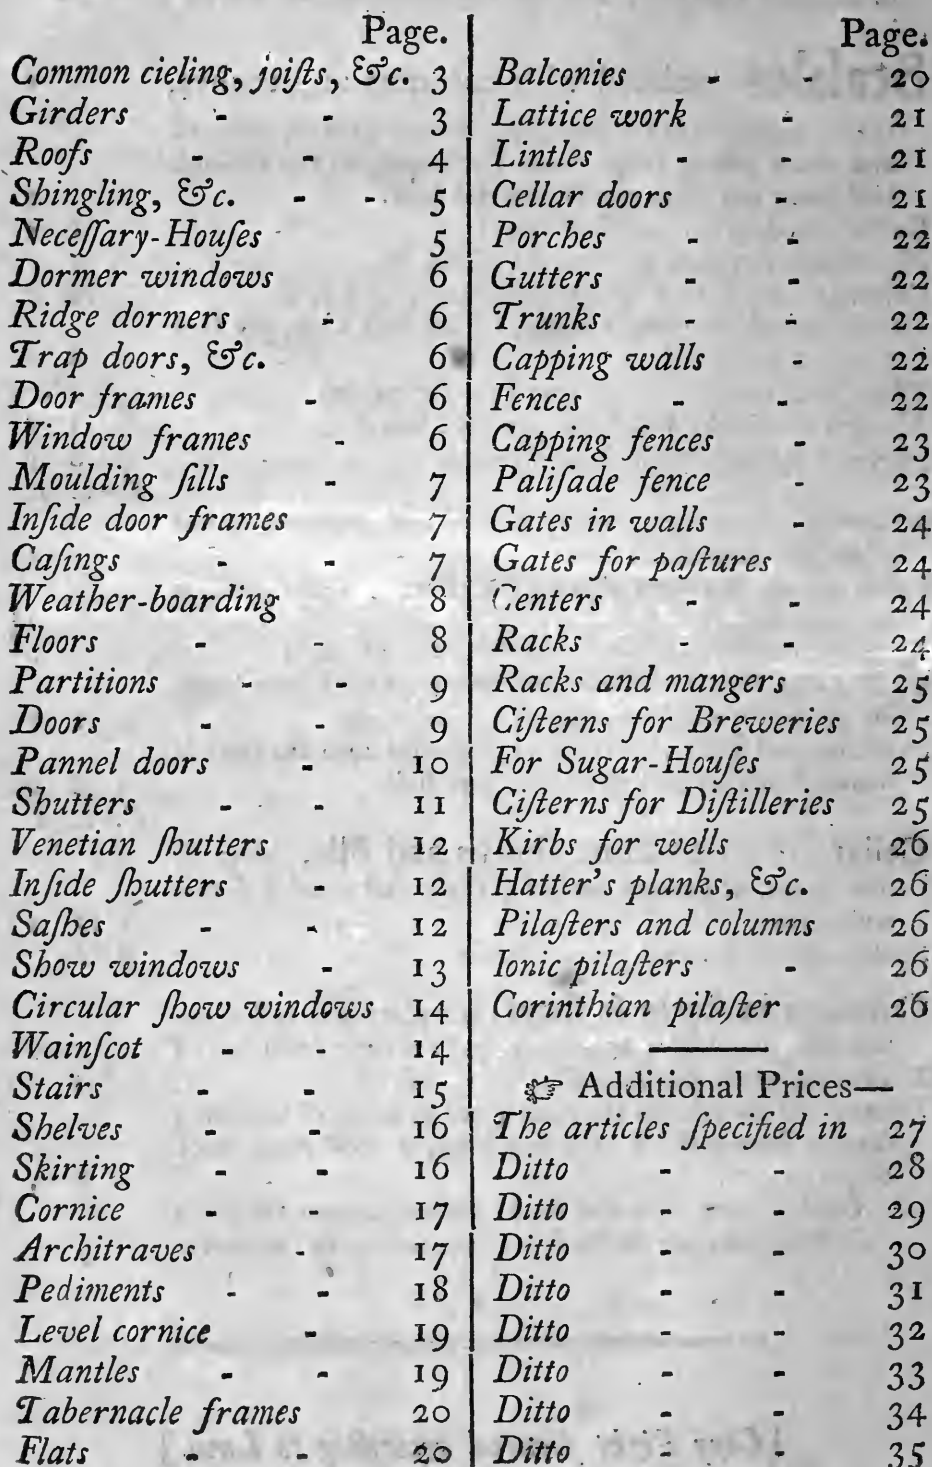 Page.
Common cieling, joiſts, &c. 3
Girders - - 3
Roofs - - 4
Shingling, &c. - - 5
Neceſſary-Houſes 5
Dormer windows 6
Ridge dormers - 6
Trap doors, &c. 6
Door frames - 6
Window frames - 6
Moulding ſills - 7
Inſide door frames 7
Caſings - - 7
Weather-boarding 8
Floors - - 8
Partitions - - 9
Doors - - 9
Pannel doors - 10
Shutters - - 11
Venetian ſhutters 12
Inſide ſhutters - 12
Saſhes - - 12
Show windows - 13
Circular ſhow windows 14
Wainſcot - - 14
Stairs - - 15
Shelves - - 16
Skirting - - 16
Cornice - - 17
Architraves - 17
Pediments - - 18
Level cornice - 19
Mantles - - 19
Tabernacle frames 20
Flats - - 20
Page.
Balconies - - 20
Lattice work - 21
Lintles - - 21
Cellar doors - 21
Porches - - 22
Gutters - - 22
Trunks - - 22
Capping walls - 22
Fences - - 22
Capping fences - 23
Paliſade fence - 23
Gates in walls - 24
Gates for paſtures 24
Centers - - 24
Racks - - 24
Racks and mangers 25
Ciſterns for Breweries 25
For Sugar-Houſes 25
Ciſterns for Diſtilleries 25
Kirbs for wells 26
Hatter's planks, &c. 26
Pilaſters and columns 26
Ionic pilaſters - 26
Corinthian pilaſter 26
☞ Additional Prices—
The articles ſpecified in 27
Ditto - - 28
Ditto - - 29
Ditto - - 30
Ditto - - 31
Ditto - - 32
Ditto - - 33
Ditto - - 34
Ditto - - 35